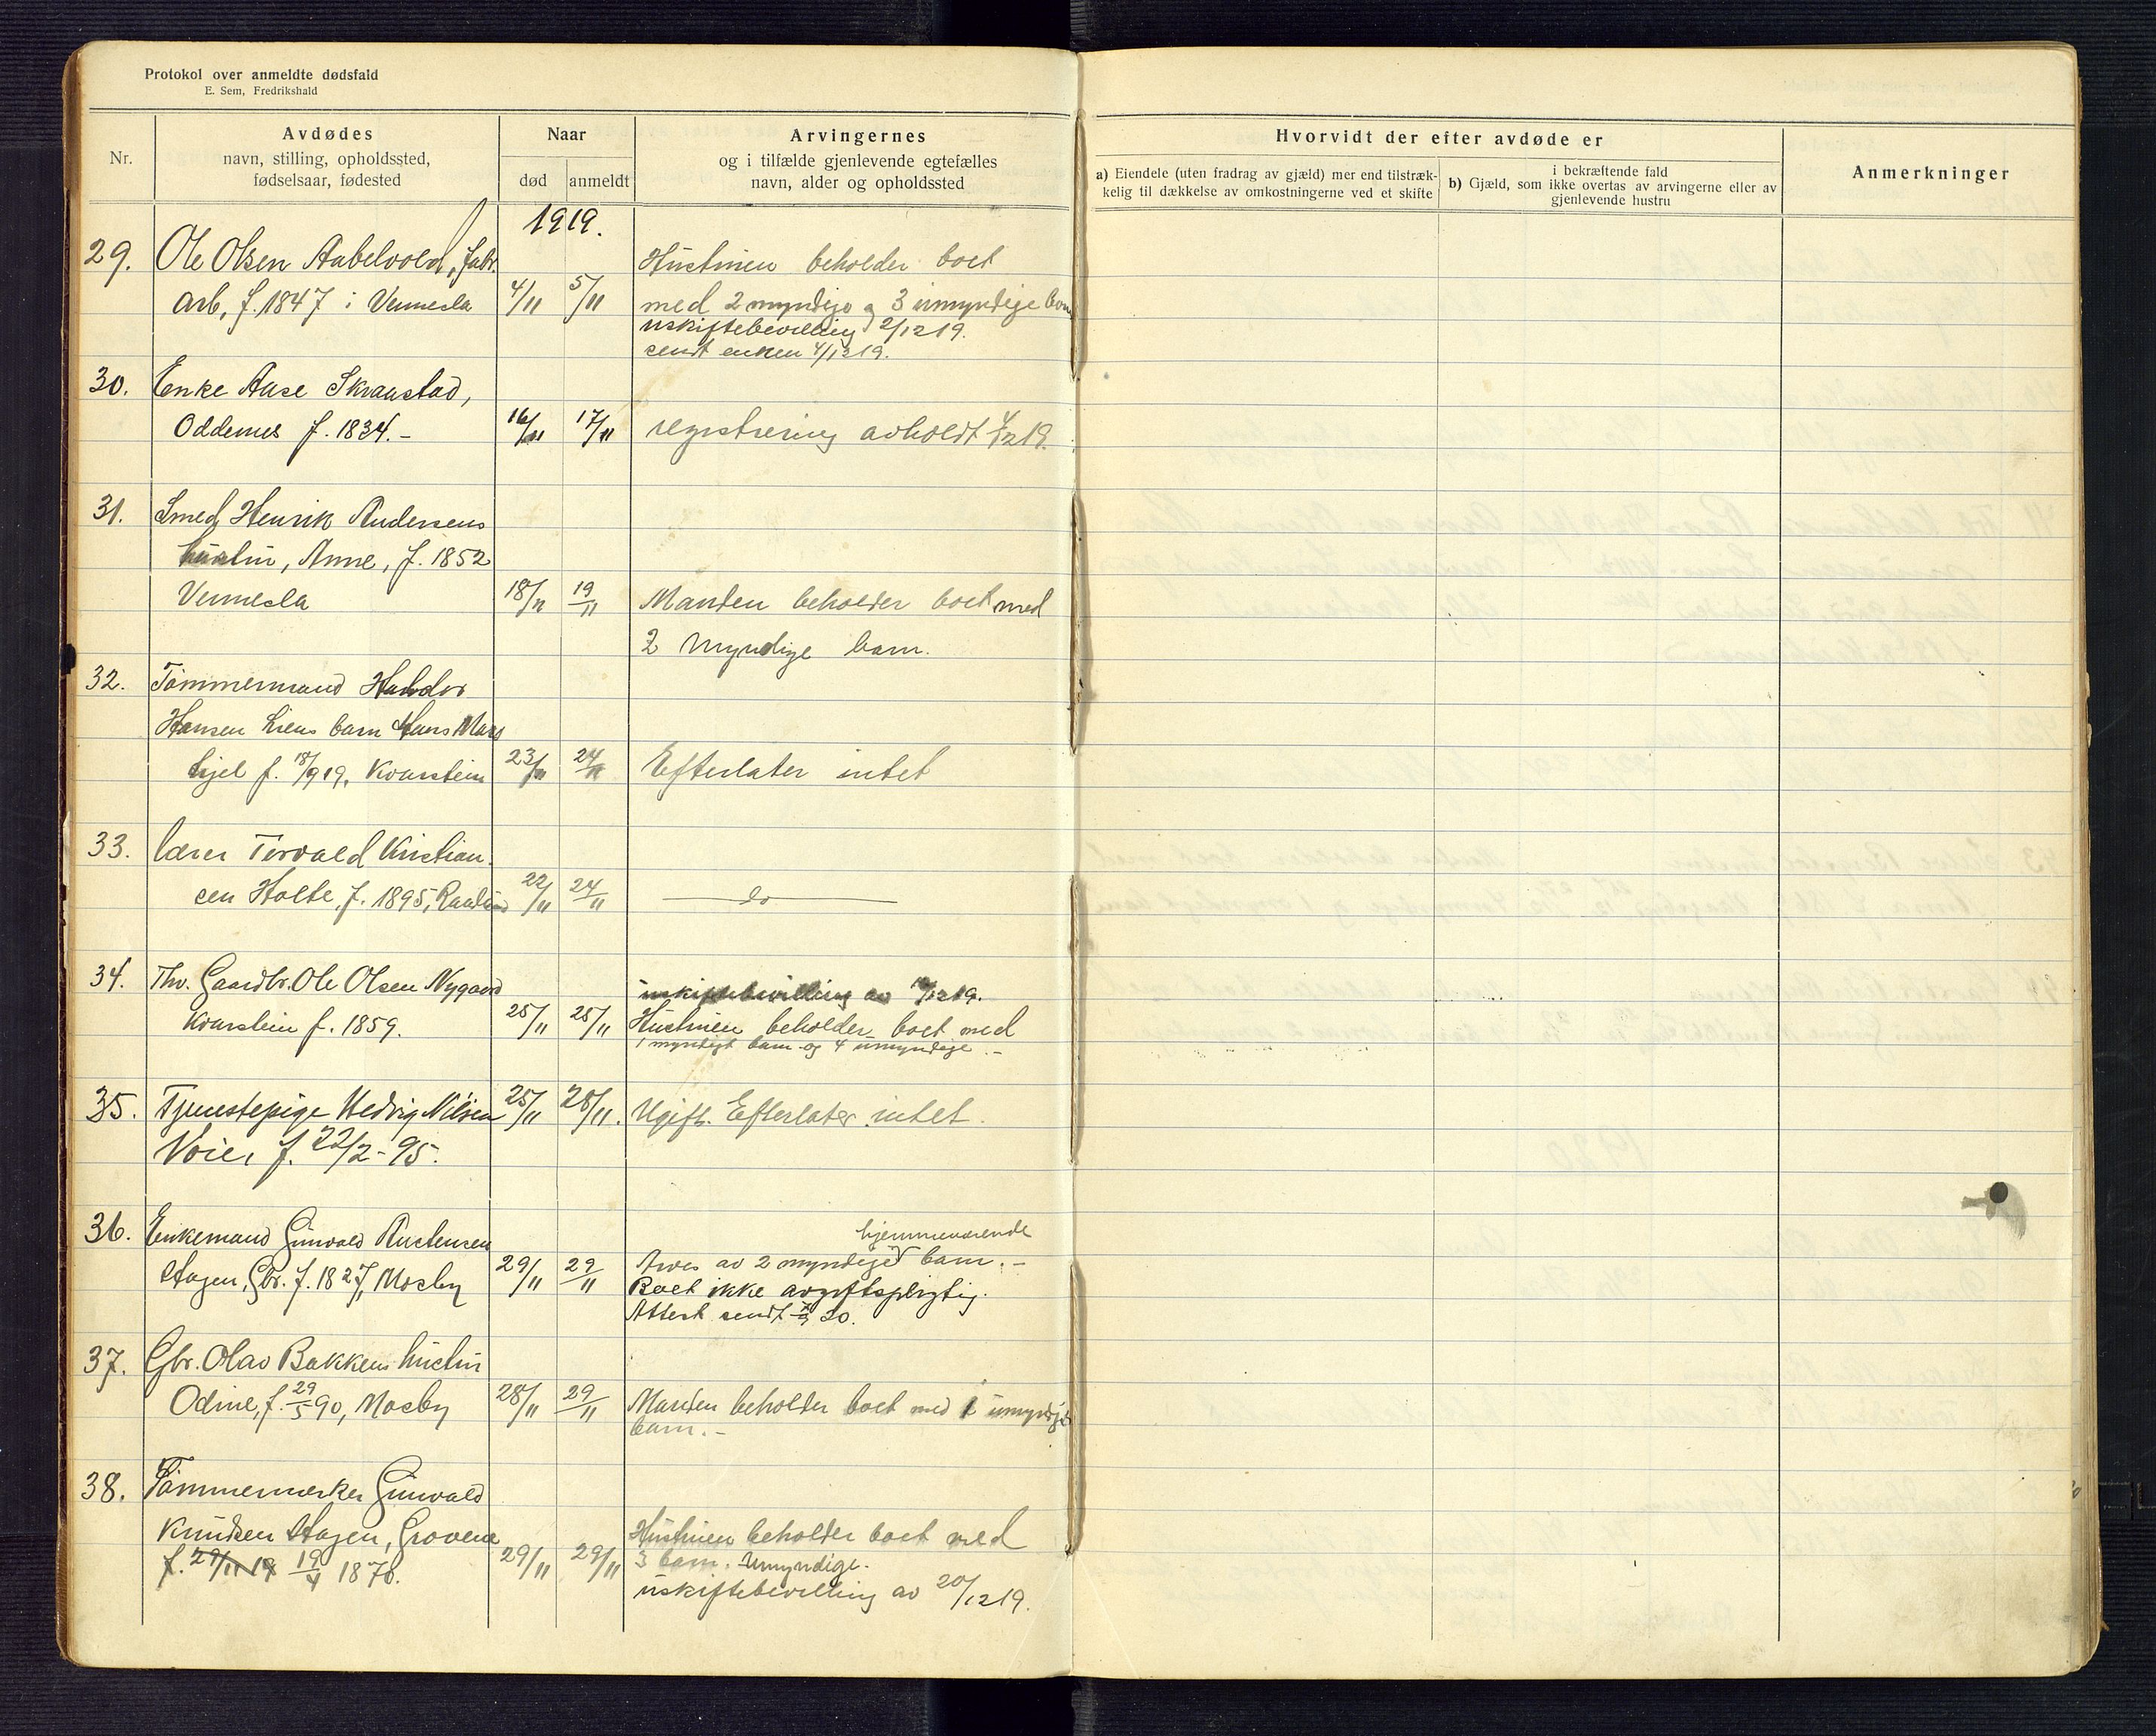 Protokol over anmeldte dødsfald
E. Sem, Fredrikshald
Nr.
Avdødes
navn, stilling, opholdssted,
fødselsaar, fødested
Naar
død
anmeldt
Arvingernes
og i tilfælde gjenlevende egtefælles
navn, alder og opholdssted
Hvorvidt der efter avdøde er
a) Eiendele (uten fradrag av gjæld) mer end tilstræk-
kelig til dækkelse av omkostningerne ved et skifte
i bekræftende fald
b) Gjæld, som ikke overtas av arvingerne eller av
gjenlevende hustru
Anmerkninger
1919.
29. Ole Olsen Aabelvold, fabr. Hustruen beholder boet
arb, f. 1847 i Vennesla 4/11 5/11 med 2 myndige og 3 umyndige barn
uskiftebevilling 2/12 19.
sendt enken 4/12 19.
30. Enke Aase Skraastad,
Oddernes f. 1834.- 16/11 17/11 registrering avholdt 4/12 19.
31. Smed Henrik Andersens
hustru, Anne, f. 1852
Vennesla 18/11 19/11 Manden beholder boet med
2 myndige barn.
32. Tømmermand Halvdor
Hansen Liens barn Hans
f. 18/9 19, Kvarstein 23/11 24/11 Efterlater intet
33. Lærer Torvald Kristian-
sen Holte, f. 1895, 22/11 24/11 do
34. Thv. Gaardbr. Ole Olsen Nygaard uskiftebevilling av 12 19.
Kvarstein f. 1859. 25/11 25/11 Hustruen beholder boet med
1 myndigt barn og 4 umyndige.-
35. Tjenestepige Hedvig Nilsen 25/11 28/11. Ugift. Efterlater intet.
Voie, f. 22/2-95.
36. Enkemand Gunvald Austensen hjemmeværende
Hagen, Gbr. f. 1827, Mosby 29/11 29/11 Arves av 2 myndige barn.-
Boet ikke avgiftspligtig.
Attest sendt 20.
37. Gbr. Olav Bakkens hustru
Odine, f. 29/5 90, Mosby 28/11 29/11 Manden beholder boet med 1 umyndigt
barn.-
38. Tømmermerker Gunvald
Knudsen Hagen, Grovene Hustruen beholder boet med
f. 29/11 19 19/4 1876. 29/11 29/11 3 barn. Umyndige.
uskiftebevilling av 20/12 19.